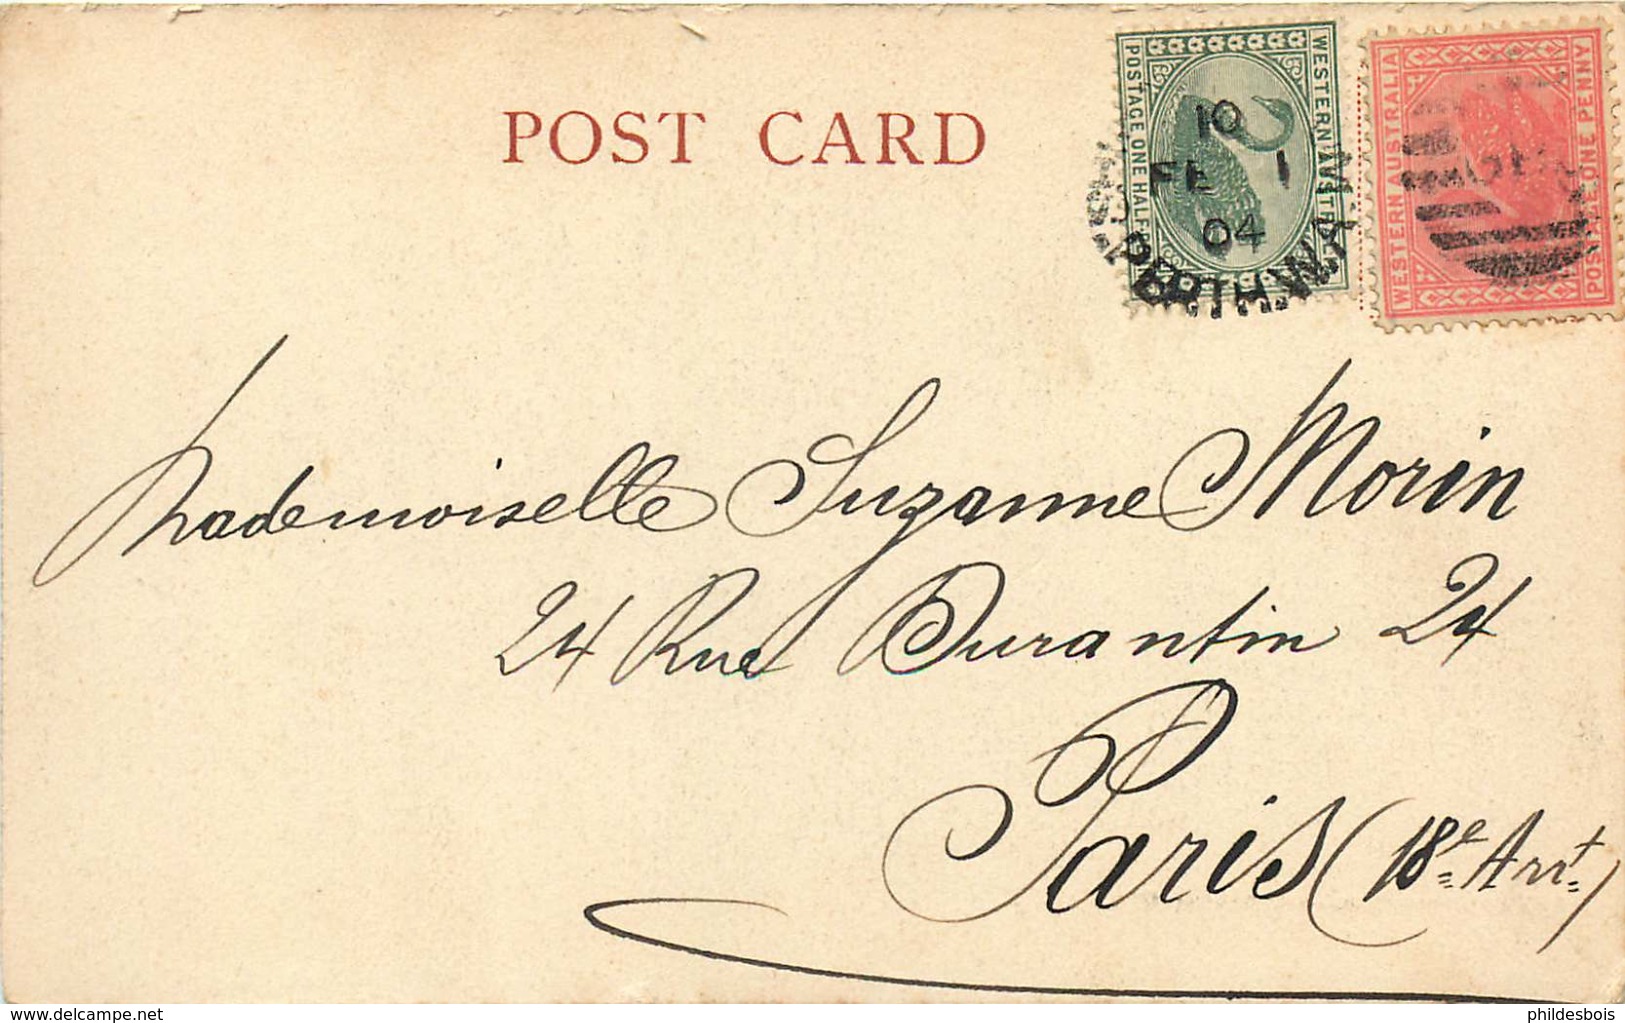 POST CARD
WESTERN AUSTR
POSTAGE ONE HALF
10
FE 1
04
PERTH W.A
WESTERN AUSTRALIA
POSTAGE ONE PENNY
Mademoiselle Suzanne Morin
24 Rue Durantin 24
Paris (18e Arrt)
www.delcampe.net
phildesbois